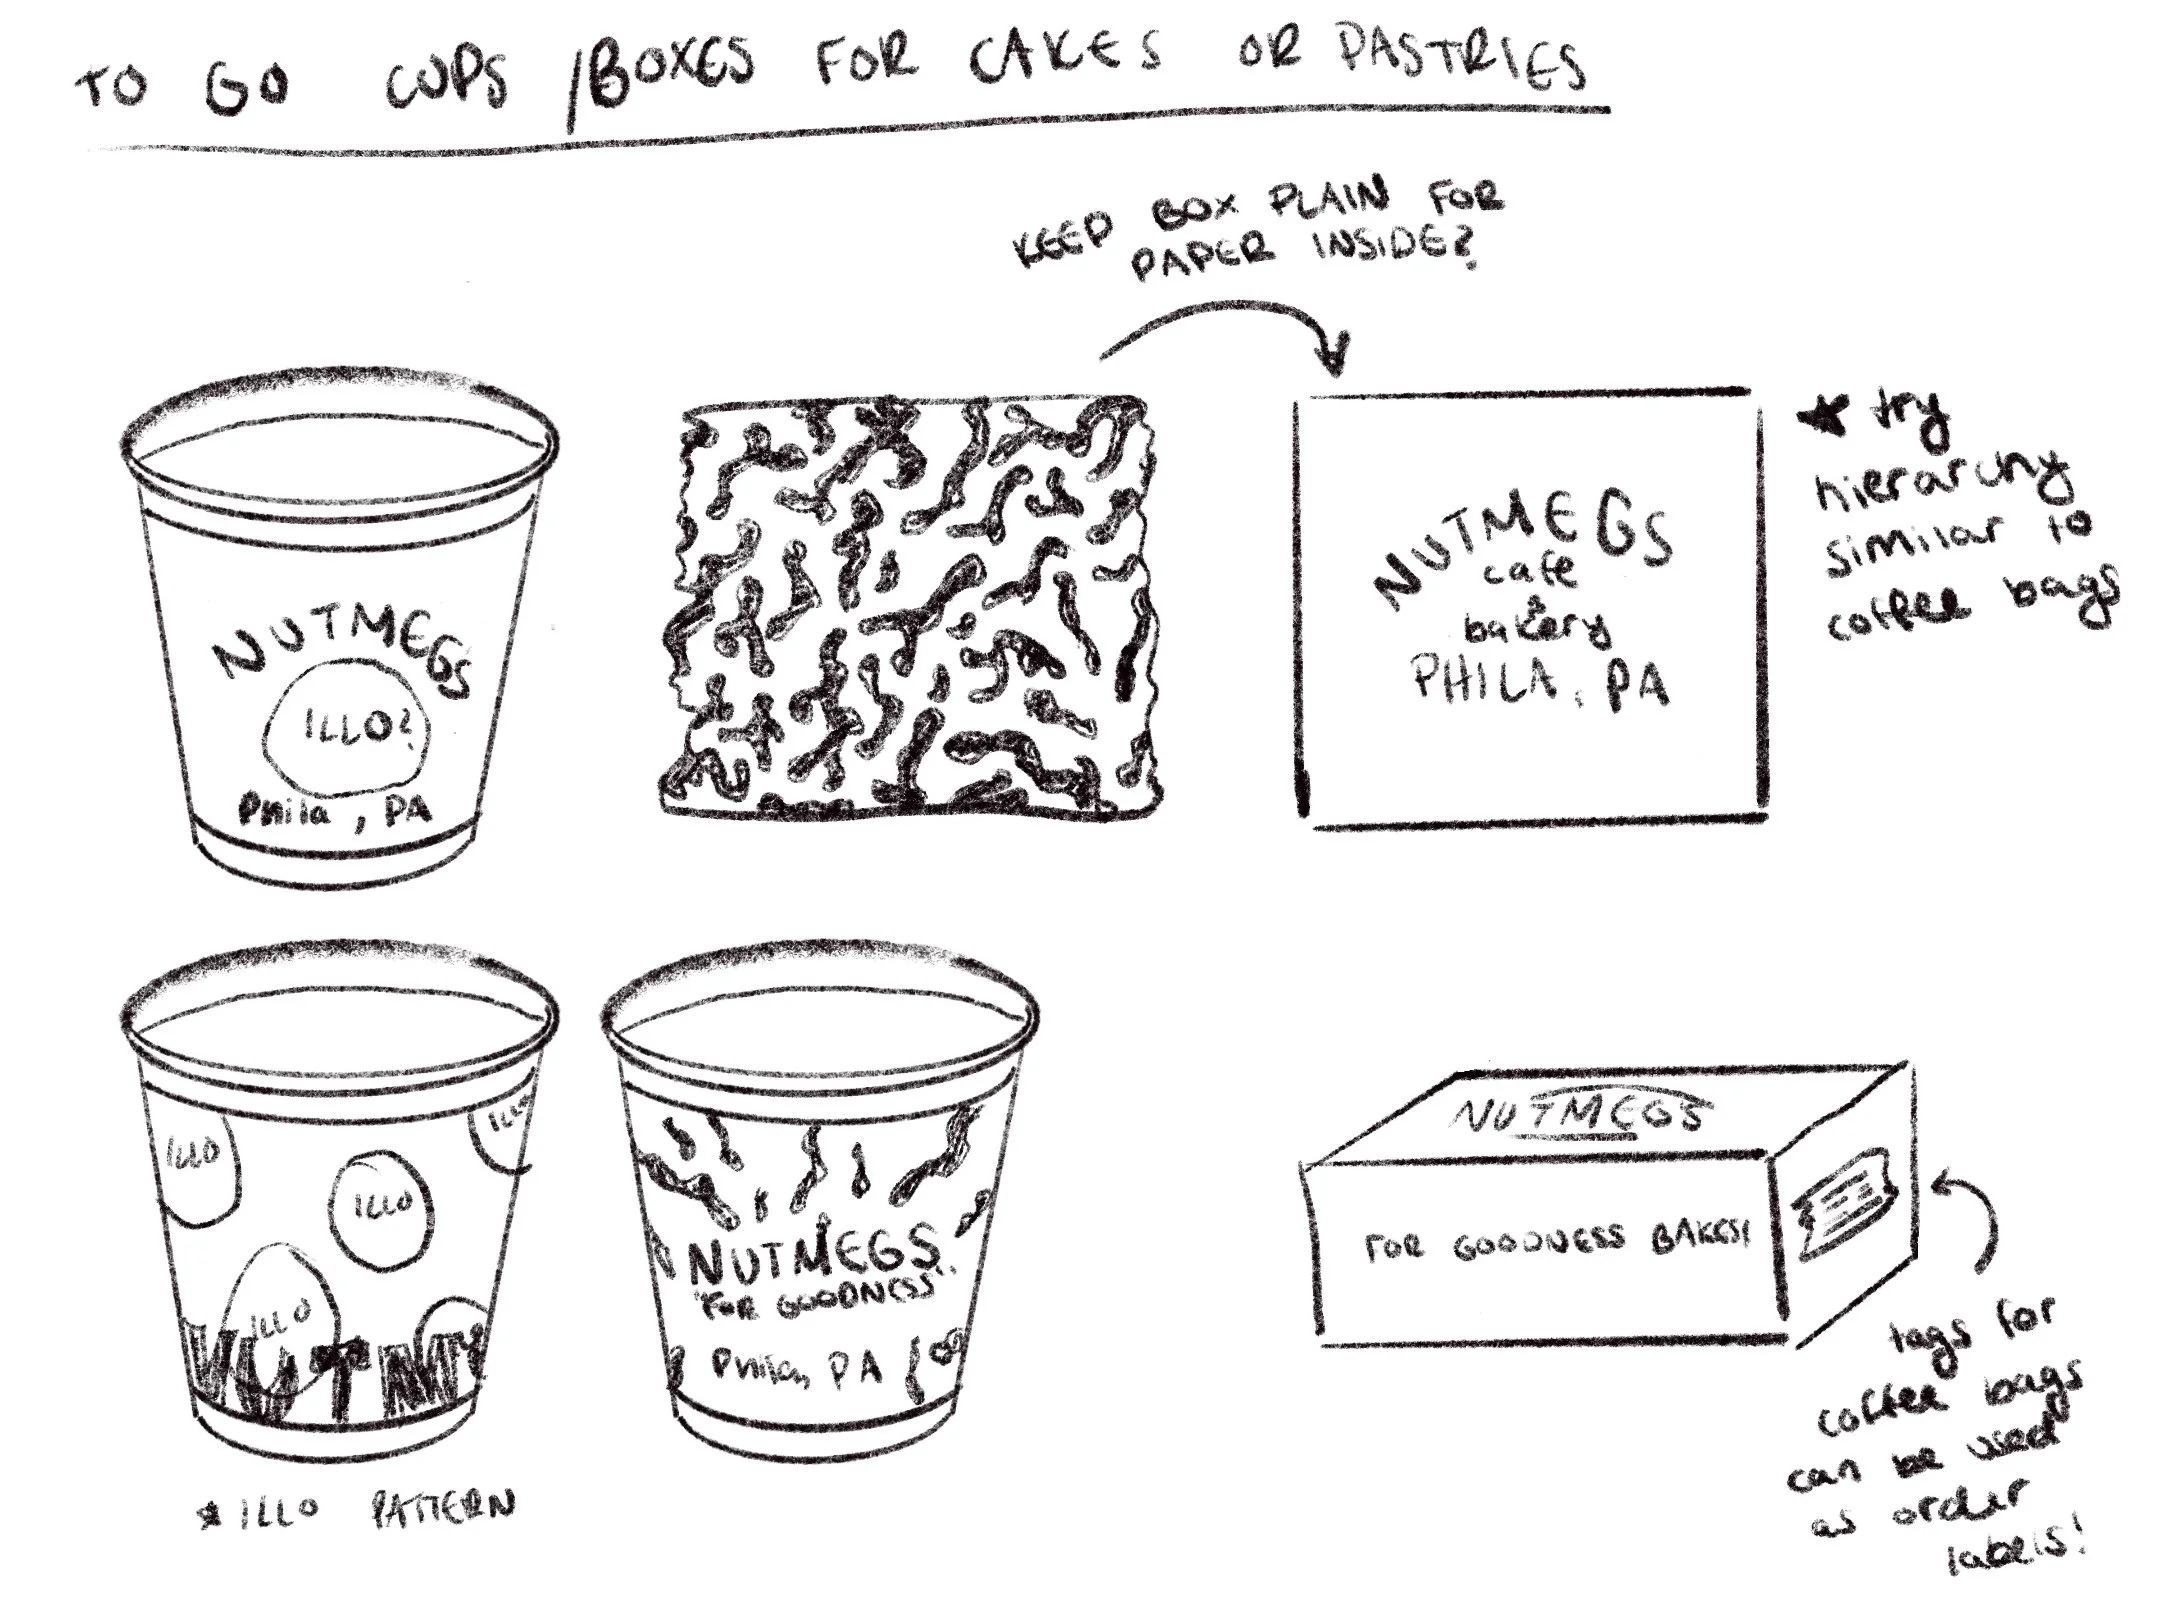 TO GO CUPS /BOXES FOR CAKES OR PASTRIES
KEEP BOX PLAIN FOR
PAPER INSIDE?
NUTMEGS
ILLO?
Phila, PA
NUTMEGS
cafe
&
bakery
PHILA, PA
★ try
hierarchy
similar to
coffee bags
ILLO
ILLO
ILLO
ILLO
NUTM
★ ILLO PATTERN
NUTMEGS
"FOR GOODNESS"
Phila, PA
NUTMEGS
FOR GOODNESS BAKES!
tags for
coffee bags
can be used
as order
labels!